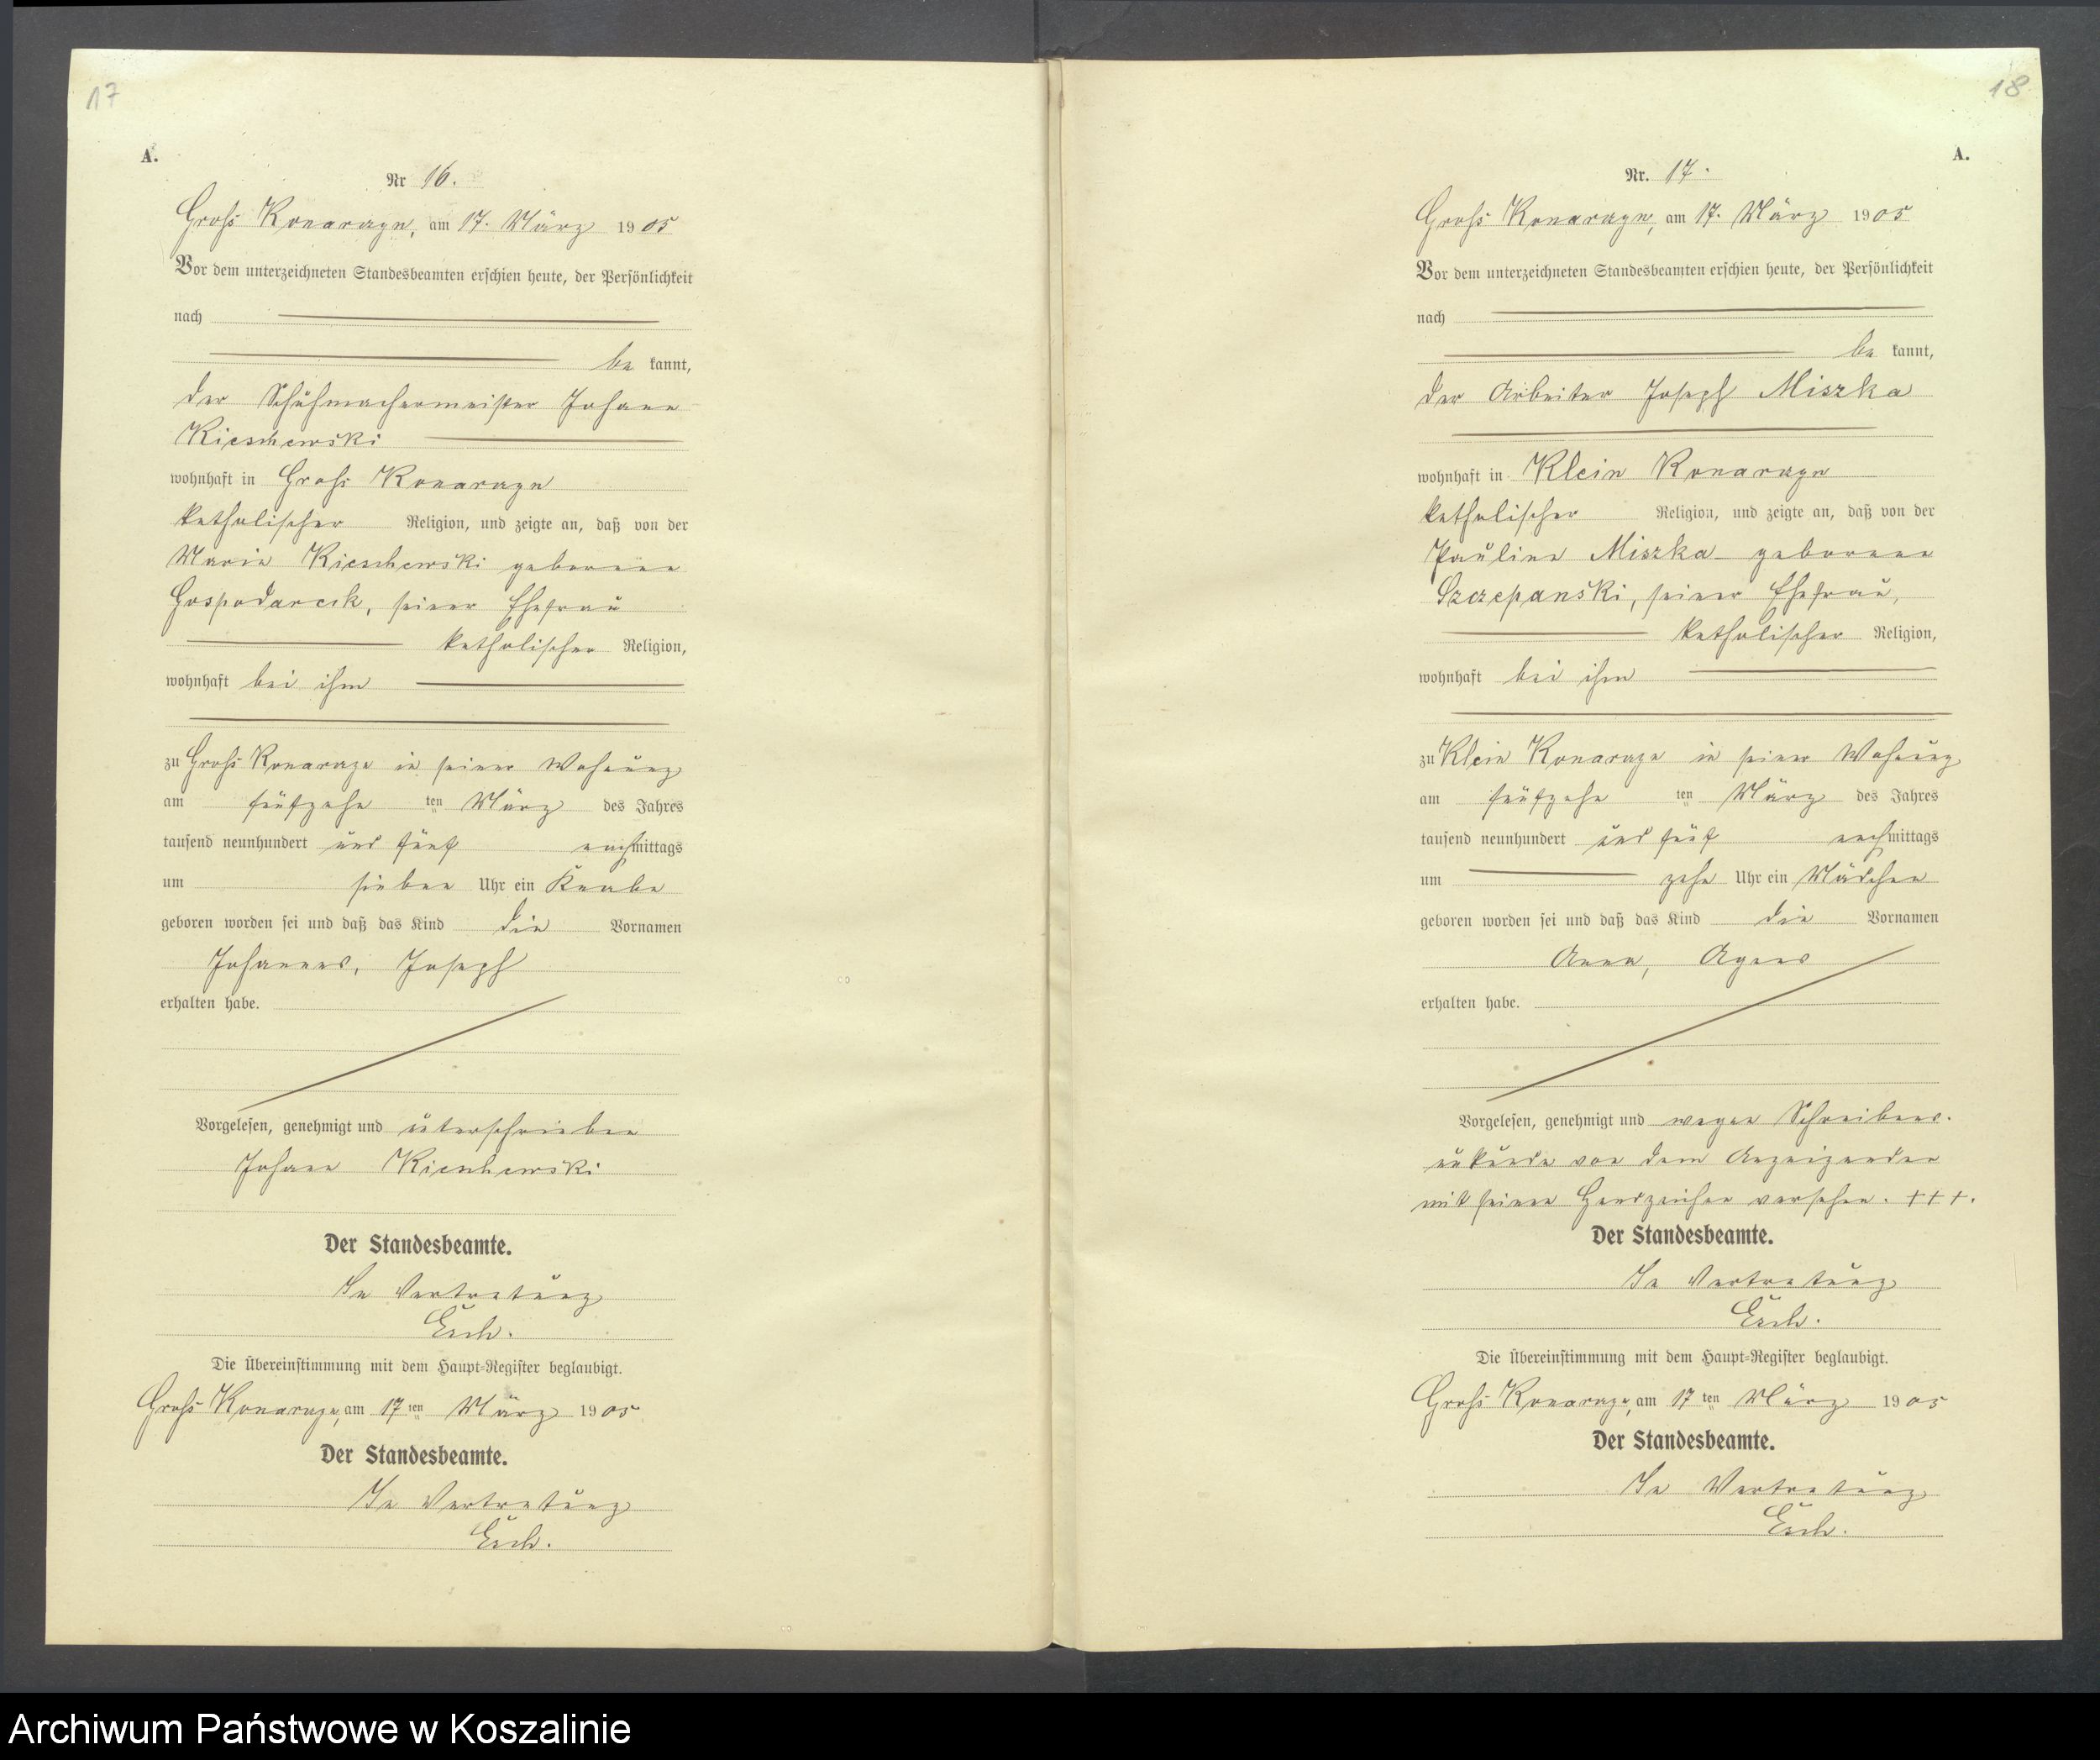 17
A.
Nr 16.
Groß Konarczyn, am 17. März 1905
Vor dem unterzeichneten Standesbeamten erschien heute, der Persönlichkeit
nach
be kannt,
der Schuhmachermeister Johann
Kieschewski
wohnhaft in Groß Konarczyn
katholischer Religion, und zeigte an, daß von der
Maria Kieschewski geborenen
Gospodareck, seiner Ehefrau
katholischer Religion,
wohnhaft bei ihm
zu Groß Konarczyn in seiner Wohnung
am fünfzehn ten März des Jahres
tausend neunhundert und fünf nachmittags
um sieben Uhr ein Knabe
geboren worden sei und daß das Kind die Vornamen
Johannes, Joseph
erhalten habe.
Vorgelesen, genehmigt und unterschrieben
Johann Kieschewski
Der Standesbeamte.
In Vertretung
Esch.
Die Übereinstimmung mit dem Haupt-Register beglaubigt.
Groß Konarczyn, am 17 ten März 1905
Der Standesbeamte.
In Vertretung
Esch.
18
A.
Nr. 17.
Groß Konarczyn, am 17. März 1905
Vor dem unterzeichneten Standesbeamten erschien heute, der Persönlichkeit
nach
be kannt,
der Arbeiter Joseph Miszka
wohnhaft in Klein Konarczyn
katholischer Religion, und zeigte an, daß von der
Pauline Miszka geborenen
Szczepanski, seiner Ehefrau,
katholischer Religion,
wohnhaft bei ihm
zu Klein Konarczyn in seiner Wohnung
am fünfzehn ten März des Jahres
tausend neunhundert und fünf nachmittags
um zehn Uhr ein Mädchen
geboren worden sei und daß das Kind die Vornamen
Anna, Agnes
erhalten habe.
Vorgelesen, genehmigt und wegen Schreibens-
unkunde von dem Anzeigenden
mit seinem Handzeichen versehen. +++.
Der Standesbeamte.
In Vertretung
Esch.
Die Übereinstimmung mit dem Haupt-Register beglaubigt.
Groß Konarczyn, am 17 ten März 1905
Der Standesbeamte.
In Vertretung
Esch.
Archiwum Państwowe w Koszalinie